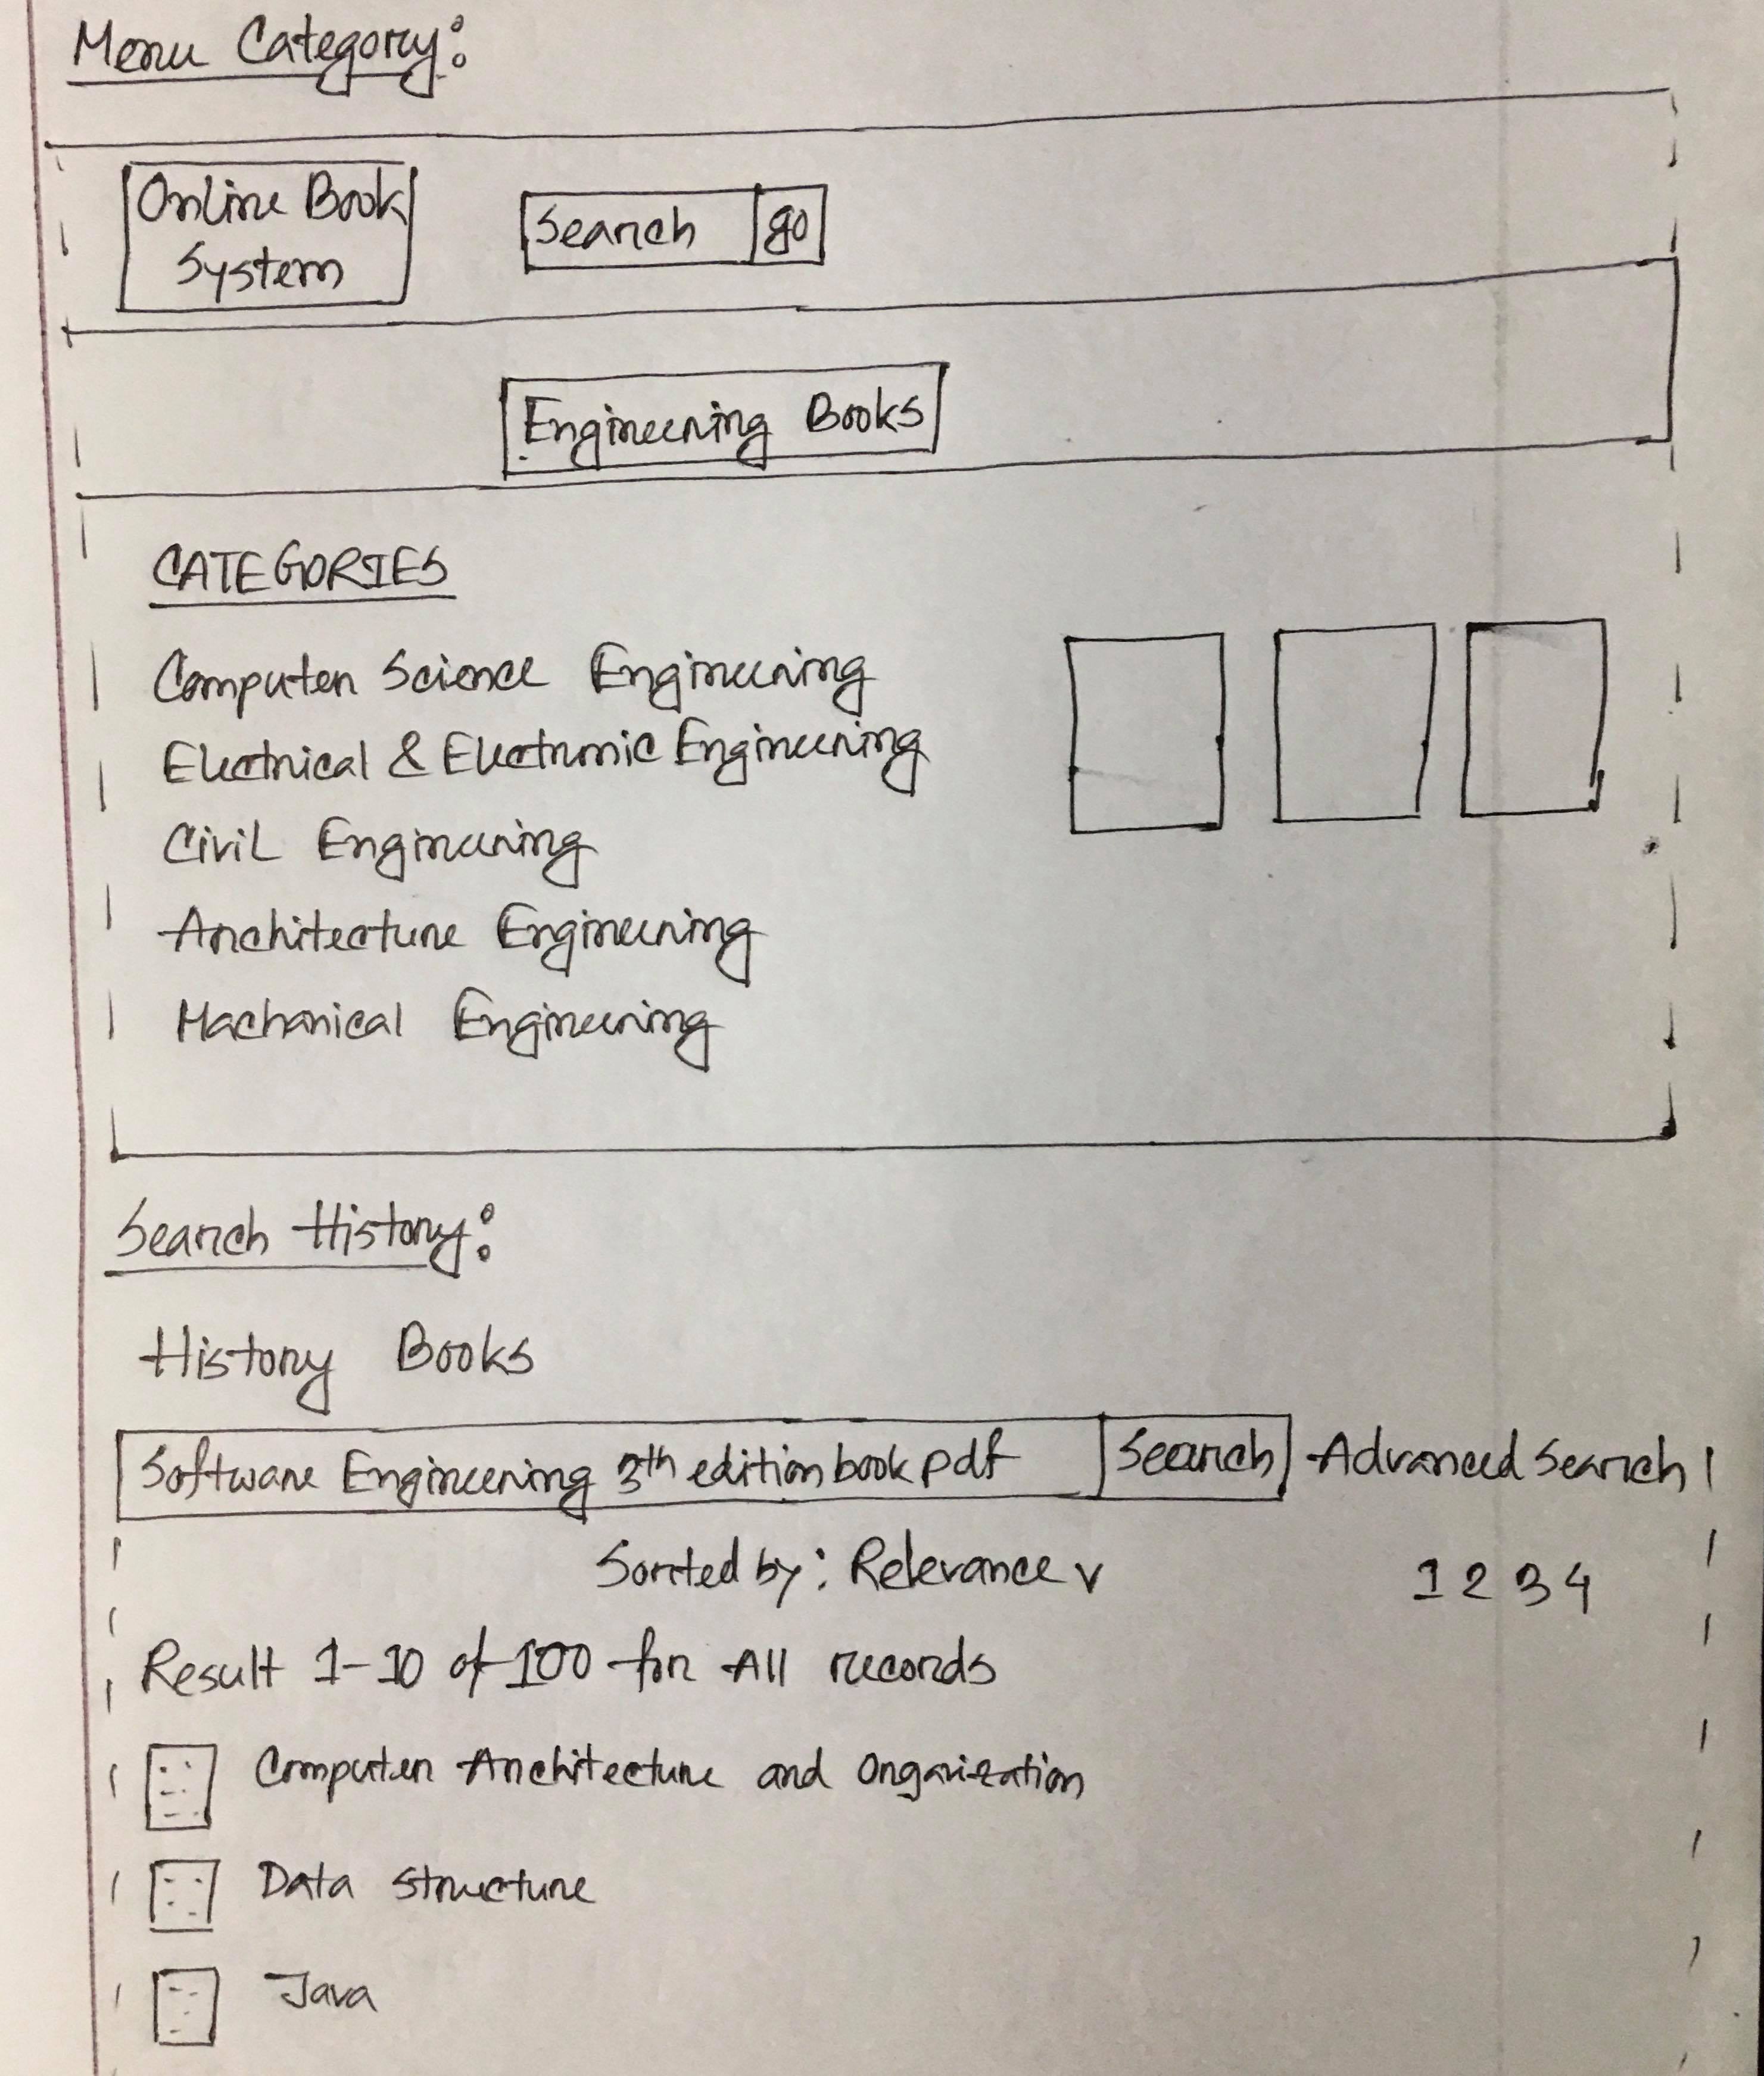 Menu Category:
Online Book
System
Search
go
Engineering Books
CATEGORIES
Computer Science Engineering
Electrical & Electronic Engineering
Civil Engineering
Architecture Engineering
Machanical Engineering
Search History:
History Books
Software Engineering 3th edition book pdf
Search
Advanced Search
Sorted by: Relevance v
1 2 3 4
Result 1-10 of 100 for All records
Computer Architecture and Organization
Data structure
Java